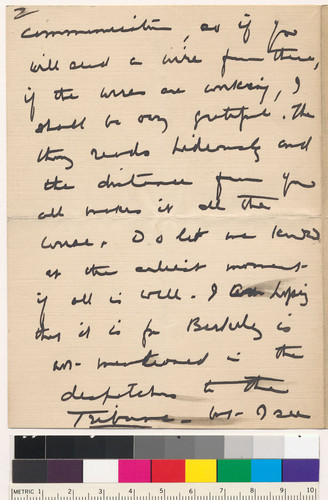 2
communication, as if you
will send a wire from there,
if the wires are working, I
shall be very grateful. The
thing reads hideously and
the distance from you
all makes it all the
worse. Do let me know
at the earliest moment
if all is well. I am hoping
that it is for Berkeley is
not mentioned in the
despatches to the
Tribune. but I see
METRIC 1 2 3 4 5 6 7 8 9 10